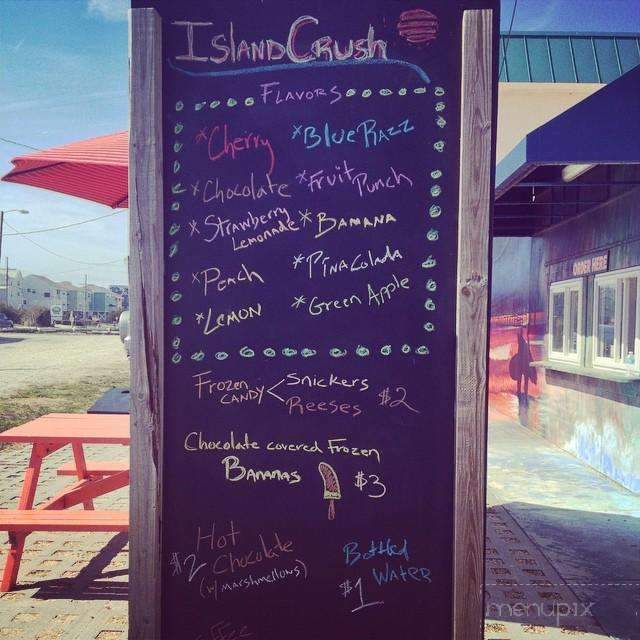 Island Crush
Flavors
*Cherry
*Blue Razz
*Chocolate
*Fruit Punch
*Strawberry
Lemonade
*Banana
*Peach
*Pina Colada
*Lemon
*Green Apple
Frozen
Candy
Snickers
Reeses
$2
Chocolate covered Frozen
Bananas
$3
Hot
Chocolate
(w/ marshmellows)
$2
Bottled
Water
$1
menupix